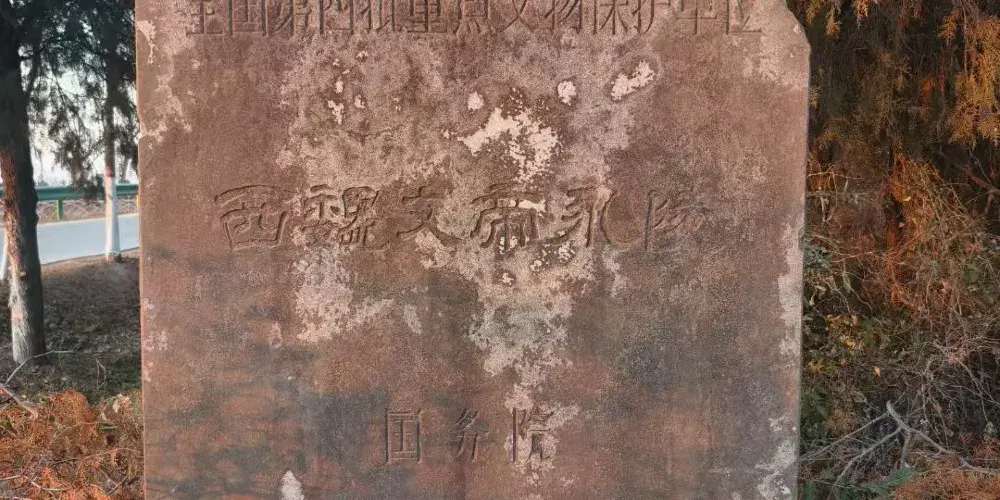 全国第四批重点文物保护单位
西魏文帝永陵
国务院